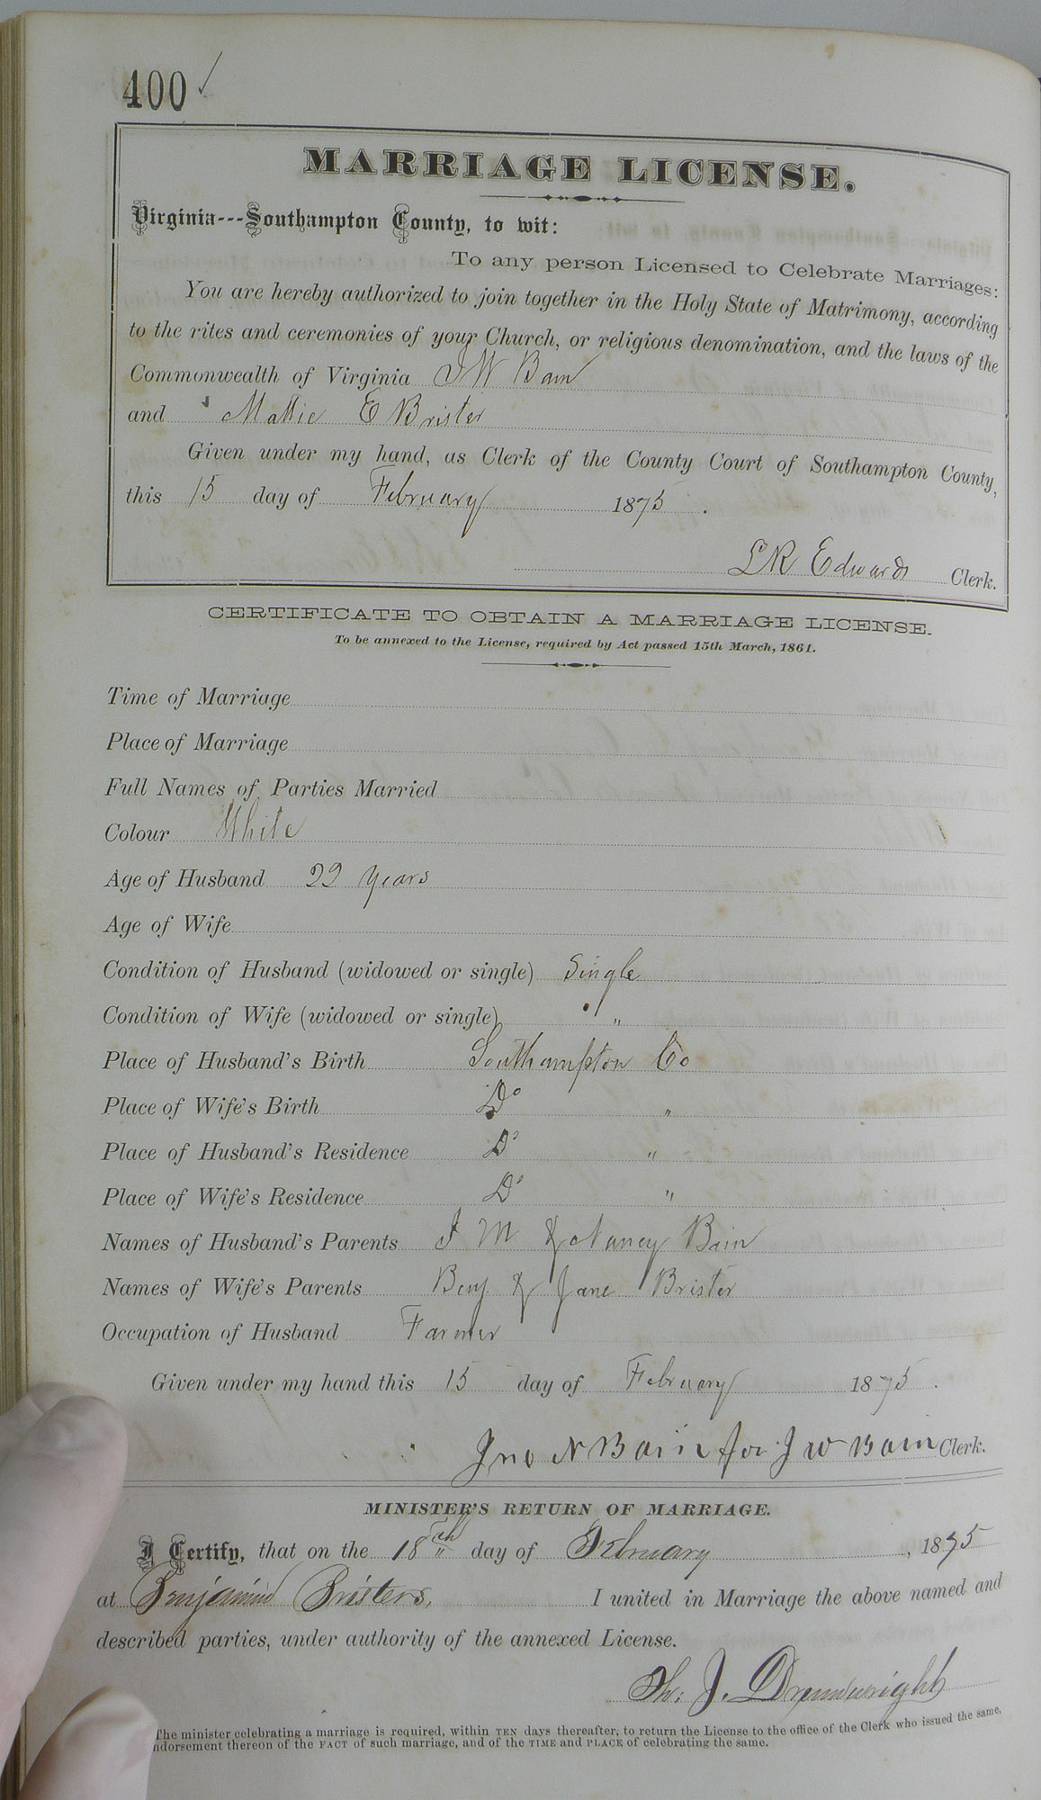 400 ✓
MARRIAGE LICENSE.
Virginia---Southampton County, to wit:
To any person Licensed to Celebrate Marriages:
You are hereby authorized to join together in the Holy State of Matrimony, according
to the rites and ceremonies of your Church, or religious denomination, and the laws of the
Commonwealth of Virginia J W Bain
and Mattie E Brister
Given under my hand, as Clerk of the County Court of Southampton County,
this 15 day of February 1875.
L R Edwards Clerk.
CERTIFICATE TO OBTAIN A MARRIAGE LICENSE.
To be annexed to the License, required by Act passed 15th March, 1861.
Time of Marriage
Place of Marriage
Full Names of Parties Married
Colour White
Age of Husband 22 Years
Age of Wife
Condition of Husband (widowed or single) Single
Condition of Wife (widowed or single) "
Place of Husband's Birth Southampton Co
Place of Wife's Birth Do "
Place of Husband's Residence Do "
Place of Wife's Residence Do "
Names of Husband's Parents J M & Nancy Bain
Names of Wife's Parents Benj & Jane Brister
Occupation of Husband Farmer
Given under my hand this 15 day of February 1875.
Jno N Bain for J W Bain Clerk.
MINISTER'S RETURN OF MARRIAGE.
I Certify, that on the 18th day of February, 1875
at Benjamin Bristers, I united in Marriage the above named and
described parties, under authority of the annexed License.
Th: J. Drumwright
The minister celebrating a marriage is required, within TEN days thereafter, to return the License to the office of the Clerk who issued the same,
ndorsement thereon of the FACT of such marriage, and of the TIME and PLACE of celebrating the same.